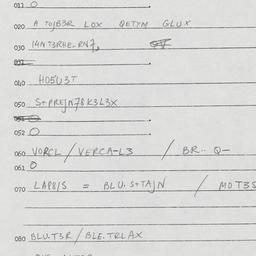 011 O
020 A TOJB3R LOX QETYN GLUX
030 I4NT3RHE-RN7,
032
040 HO5U3T
050 S+PREJN78K3L3X
052 O
060 VORCL / VERCA-L3 / BR-- Q-
061 O
070 LAP8/S = BLU. S+TAJN / MOT3S
080 BLU.T3R / BLE.TRLAX